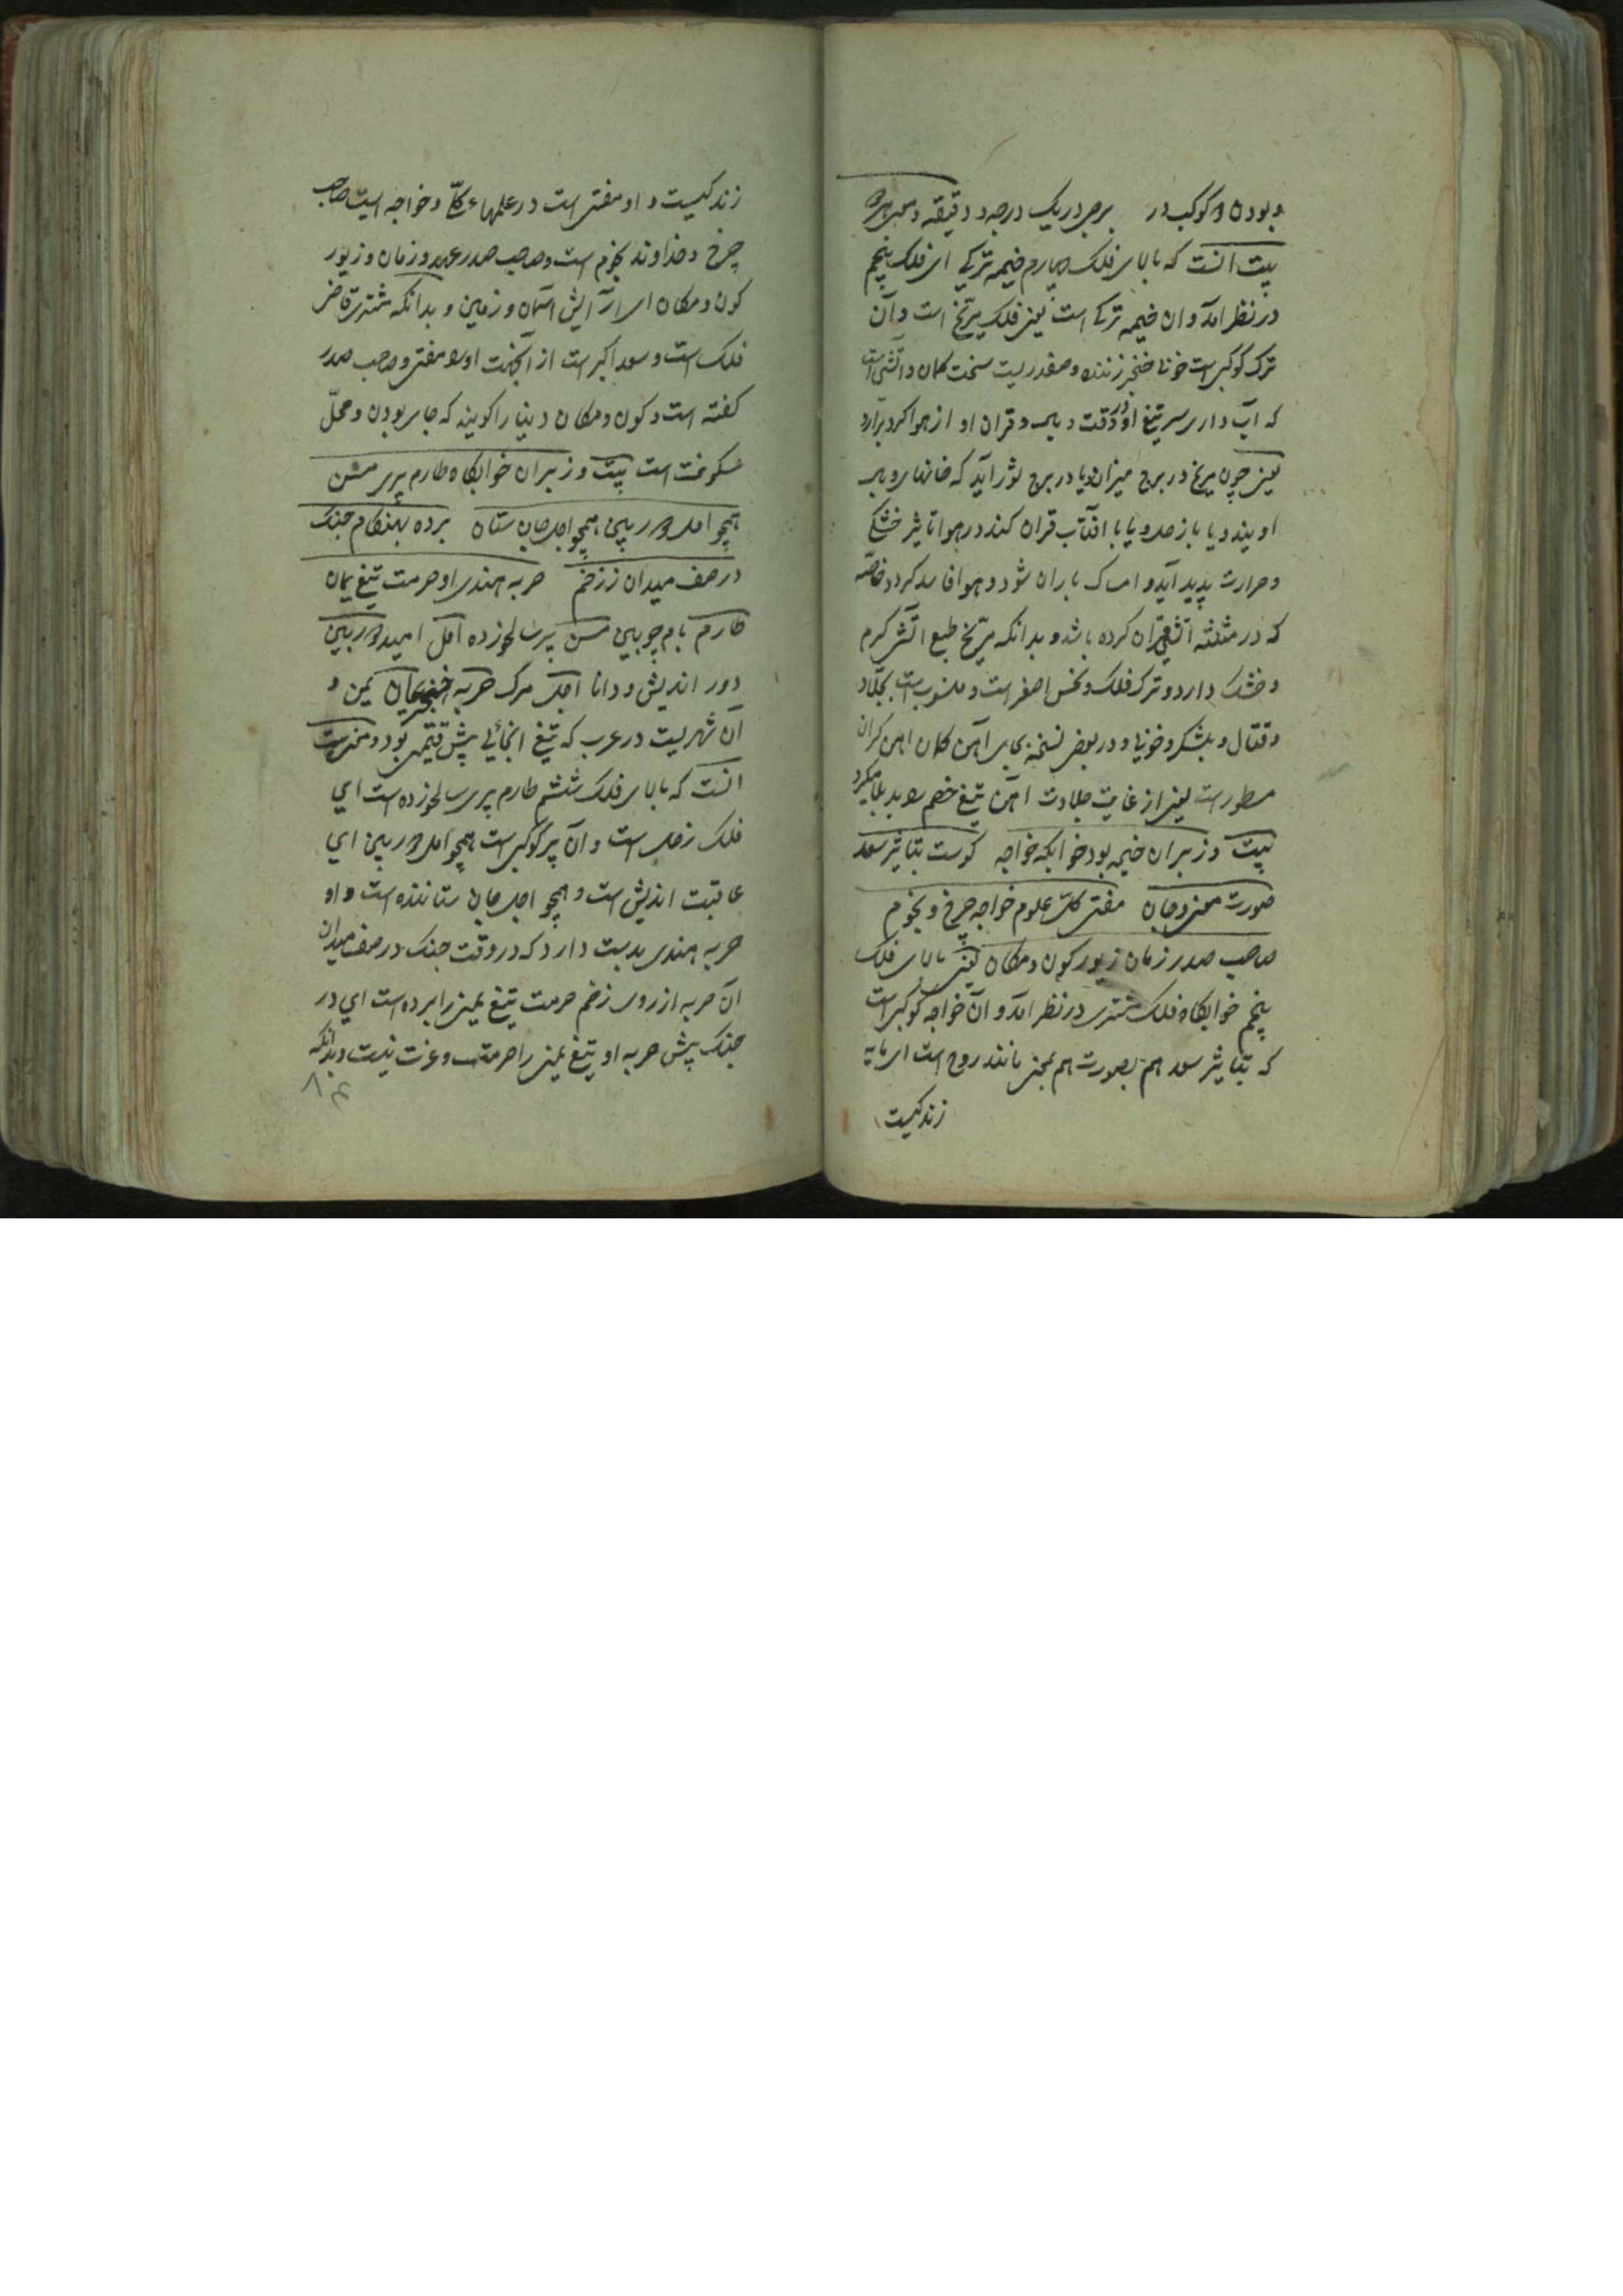 و بودن دو کوکب در برجی در یک درجه و دقیقه و معنی
بیت آنست که بالای فلک چهارم خیمه ترکی ای فلک پنجم
در نظر آمد و آن خیمه ترکی است یعنی فلک مریخ است و آن
ترک کوکبی است خونا خنجر زننده و صفدریست سخت کمان و آتشی است
که آب داری سر تیغ او در وقت و قران او از هوا کرد برآرد
یعنی چون مریخ در برج میزان و یا در برج ثور آید که خانهای
او یند و یا با زحل و یا با آفتاب قران کند در هوا تاثیر خشکی
و حرارت پدید آید و امساک باران شود و هوا فاسد کردد خاصه
که در مثلثه آتشی قران کرده باشد و بدانکه مریخ طبع آتش کرم
و خشک دارد و ترک فلک و نحس اصغر است و منسوب است بجلاد
و قتال و لشکر و خونیا و در بعض نسخه بجای آهن کلان آهن کران
مسطور است یعنی از غایت جلادت آهن تیغ خصم
بیت وز بر آن خیمه بود خوابکه خواجه کوست بتاثیر سعد
صورت معنی و جان مفتی کل علوم خواجه چرخ و نجوم
صاحب صدر زمان زیور کون و مکان یعنی بالای فلک
پنجم خوابکاه فلک مشتری در نظر آمد و آن خواجه کوکبی است
که بتاثیر سعد هم بصورت هم بمعنی مانند روح است ای مایه
زندکیست
زندکیست و او مفتی است در علمهاء کل و خواجه ایست صاحب
چرخ و خداوند نجوم است و صاحب صدر عهد و زمان و زیور
کون و مکان ای آرایش آسمان و زمین و بدانکه مشتری قاضی
فلک است و سعد اکبر است از آنجهت او را مفتی و صاحب صدر
کفته است و کون و مکان دنیا را کویند که جای بودن و محل
سکونت است بیت وز بر آن خوابکاه طارم پیری مسن
همچو امل دوربین همچو اجل جان ستان برده بهنکام جنک
در صف میدان ز زخم حربه هندی او حرمت تیغ یمان
طارم بام چوبین مسن پیر سالخورده امل امید دوربین
دور اندیش و دانا اجل مرک حربه خنجر یمان یمن و
آن شهریست در عرب که تیغ انجائی بیش قیمتی بود و معنی بیت
آنست که بالای فلک ششم طارم پیری سالخورده است ای
فلک زحل است و آن پیر کوکبی است همچو امل دوربین ای
عاقبت اندیش است و همچو اجل جان ستاننده است و او
حربه هندی بدست دارد که در وقت جنک در صف میدان
آن حربه از روی زخم حرمت تیغ یمنی را برده است ای در
جنک پیش حربه او تیغ یمنی را حرمت و عزت نیست و بدانکه